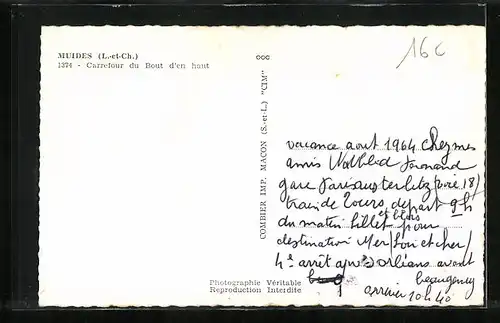 MUIDES (L.-et-Ch.)
1374 - Carrefour du Bout d'en haut
16 C
COMBIER IMP. MACON (S.-et-L.) "CIM"
vacance aout 1964 chez mes
amis
gare Paris austerlitz (voie 18)
train de Tours, départ 9h
du matin billet et blois pour
destination Mer/Loir et cher/
4e arrêt après Orléans avant
beaugency
arrivée 10h40
Photographie Véritable
Reproduction Interdite